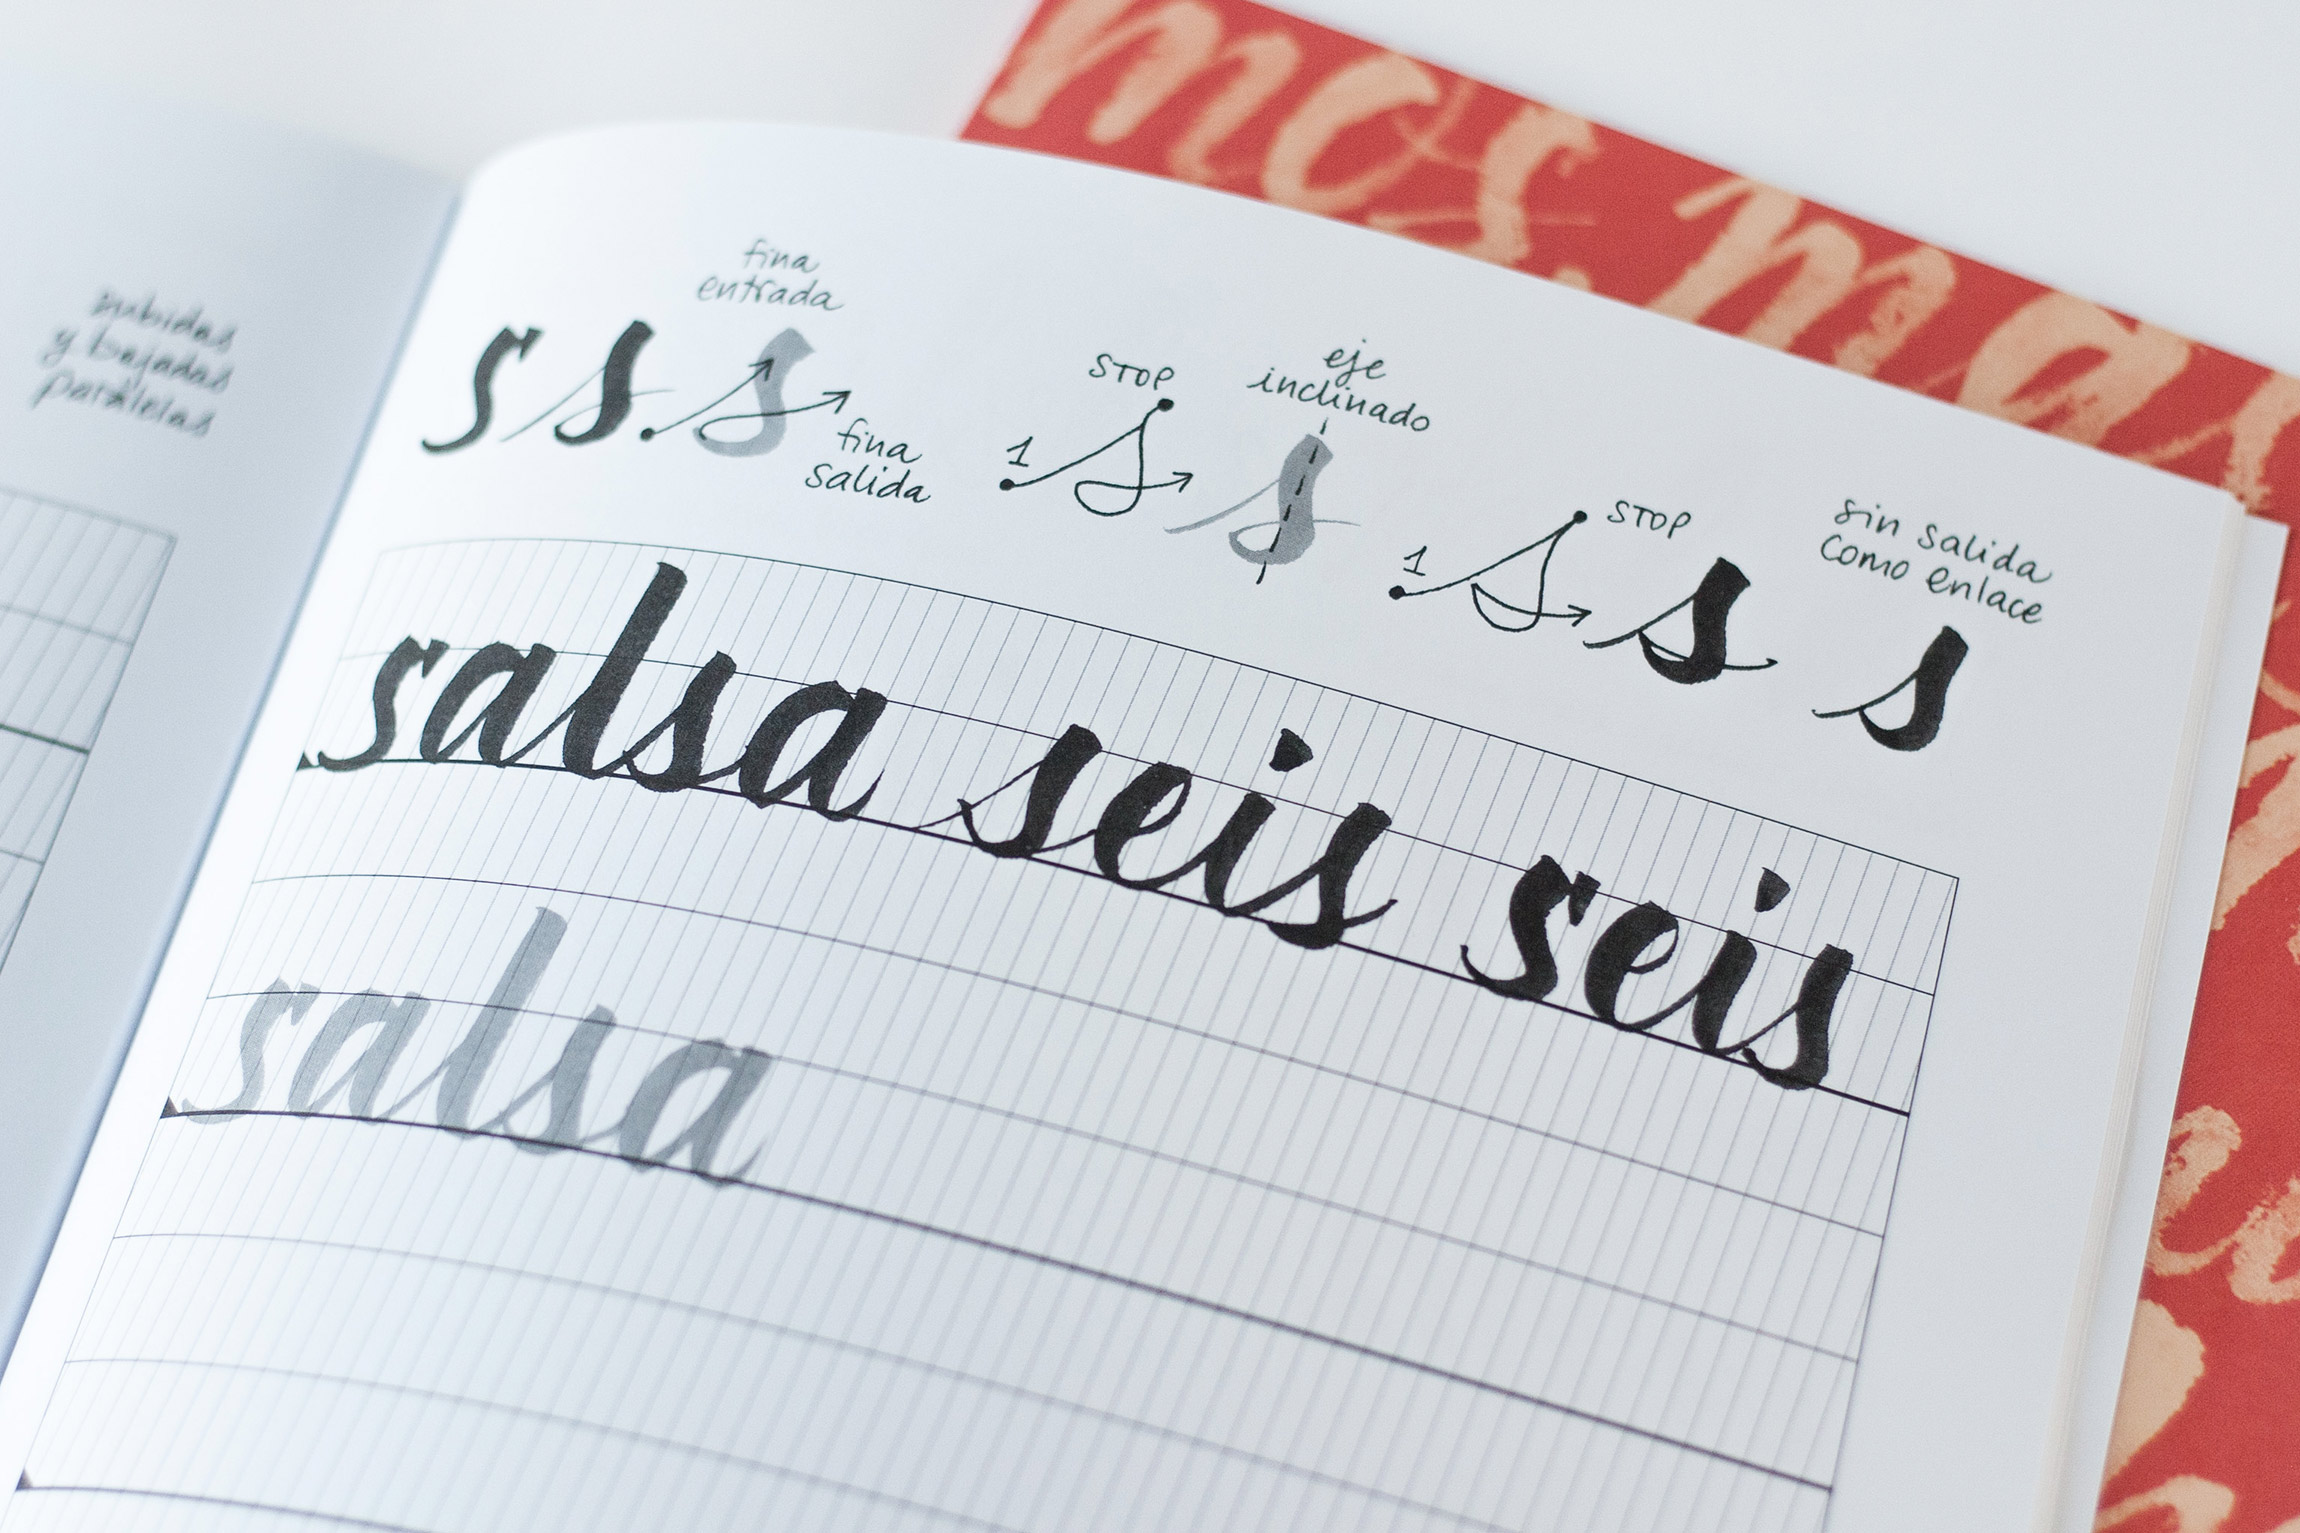 subidas
y bajadas
paralelas
fina
entrada
s s. s
fina
salida
STOP
1
eje
inclinado
s
1
STOP
s
sin salida
como enlace
s
salsa seis seis
salsa
mos. mas